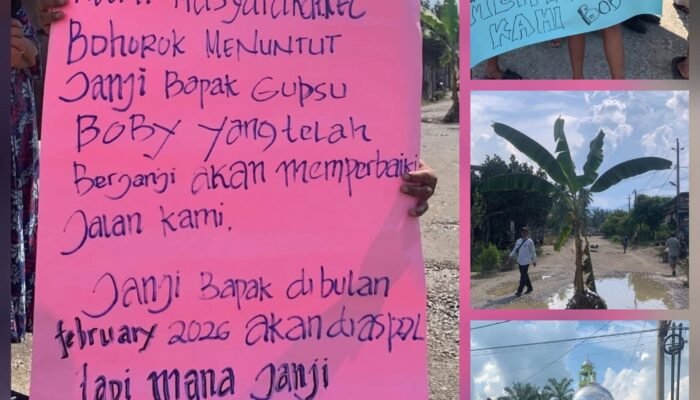 Bohorok MENUNTUT
Janji Bapak Gupsu
BOBY yang telah
Berjanji akan memperbaiki
Jalan kami.
Janji Bapak dibulan
february 2026 akan diaspal
tapi mana Janji
KAMI BOBY